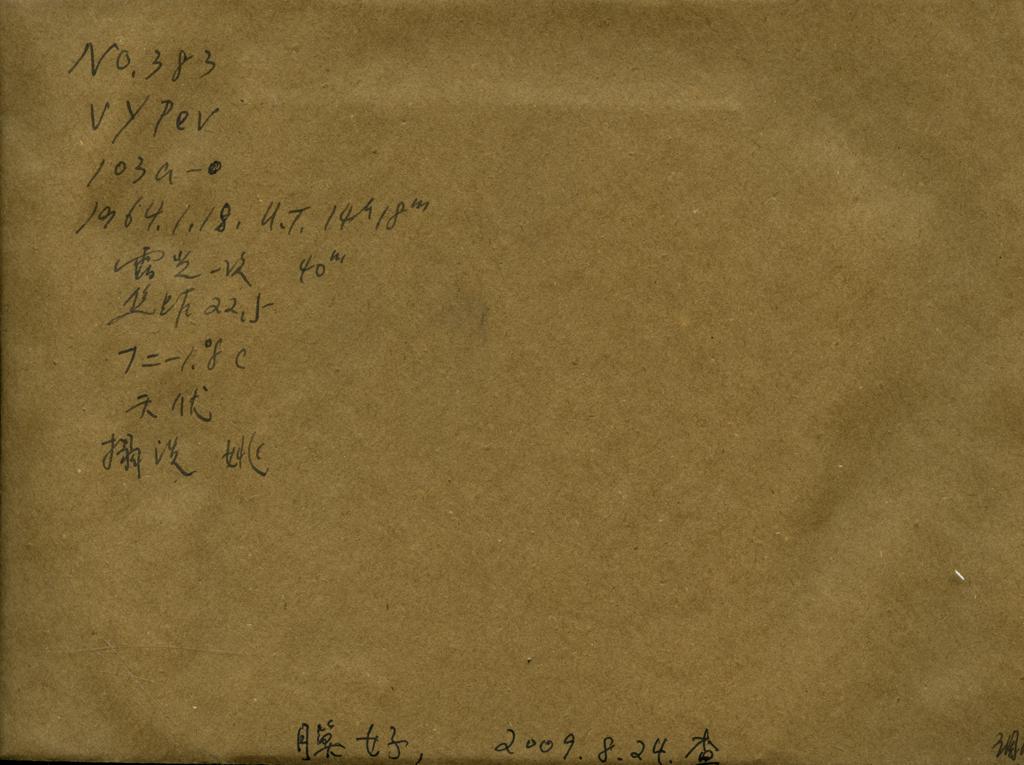 No. 383
VY Per
103a-O
1964.1.18. U.T. 14h18m
露光一次 40m
焦距 22.5
T=-1.°8 C
天优
摄洗 姚
膜好, 2009.8.24. 查